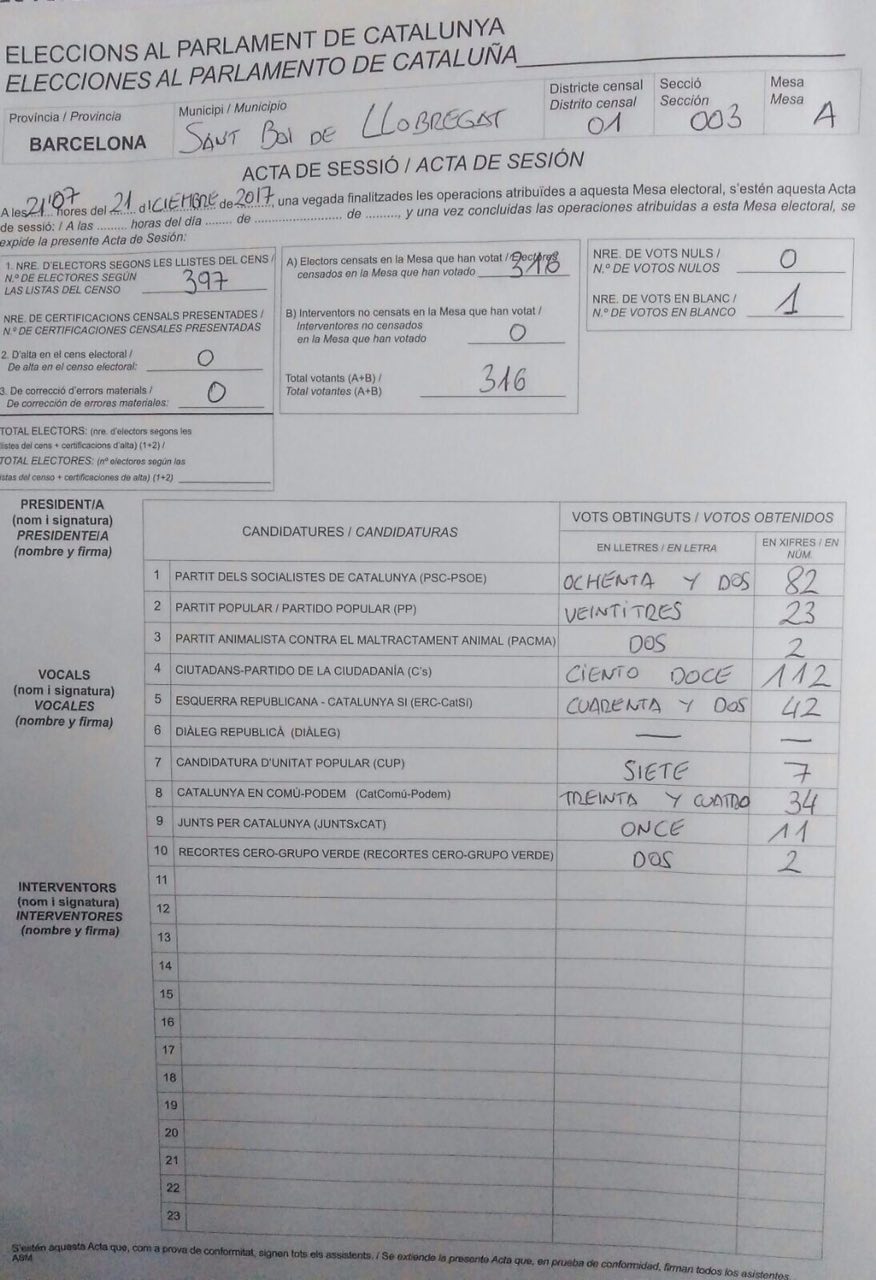 ELECCIONS AL PARLAMENT DE CATALUNYA
ELECCIONES AL PARLAMENTO DE CATALUÑA
Província / Provincia
BARCELONA
Municipi / Municipio
SANT BOI DE LLOBREGAT
Districte censal
Distrito censal
01
Secció
Sección
003
Mesa
Mesa
A
ACTA DE SESSIÓ / ACTA DE SESIÓN
A les 21'07 hores del 21 dICIEMBRE de 2017, una vegada finalitzades les operacions atribuïdes a aquesta Mesa electoral, s'estén aquesta Acta
de sessió: / A las ......... horas del día ......... de ......................... de .........., y una vez concluidas las operaciones atribuidas a esta Mesa electoral, se
expide la presente Acta de Sesión:
1. NRE. D'ELECTORS SEGONS LES LLISTES DEL CENS /
N.º DE ELECTORES SEGÚN
LAS LISTAS DEL CENSO 397
NRE. DE CERTIFICACIONS CENSALS PRESENTADES /
N.º DE CERTIFICACIONES CENSALES PRESENTADAS
2. D'alta en el cens electoral /
De alta en el censo electoral: 0
3. De correcció d'errors materials /
De corrección de errores materiales: 0
TOTAL ELECTORS: (nre. d'electors segons les
llistes del cens + certificacions d'alta) (1+2) /
TOTAL ELECTORES: (nº electores según las
listas del censo + certificaciones de alta) (1+2)
A) Electors censats en la Mesa que han votat / Electores
censados en la Mesa que han votado 316
B) Interventors no censats en la Mesa que han votat /
Interventores no censados
en la Mesa que han votado 0
Total votants (A+B) /
Total votantes (A+B) 316
NRE. DE VOTS NULS /
N.º DE VOTOS NULOS 0
NRE. DE VOTS EN BLANC /
N.º DE VOTOS EN BLANCO 1
PRESIDENT/A
(nom i signatura)
PRESIDENTE/A
(nombre y firma)
VOCALS
(nom i signatura)
VOCALES
(nombre y firma)
INTERVENTORS
(nom i signatura)
INTERVENTORES
(nombre y firma)
CANDIDATURES / CANDIDATURAS
VOTS OBTINGUTS / VOTOS OBTENIDOS
EN LLETRES / EN LETRA
EN XIFRES / EN
NÚM.
1 PARTIT DELS SOCIALISTES DE CATALUNYA (PSC-PSOE) OCHENTA Y DOS 82
2 PARTIT POPULAR / PARTIDO POPULAR (PP) VEINTITRES 23
3 PARTIT ANIMALISTA CONTRA EL MALTRACTAMENT ANIMAL (PACMA) DOS 2
4 CIUTADANS-PARTIDO DE LA CIUDADANÍA (C's) CIENTO DOCE 112
5 ESQUERRA REPUBLICANA - CATALUNYA SI (ERC-CatSí) CUARENTA Y DOS 42
6 DIÀLEG REPUBLICÀ (DIÀLEG) — —
7 CANDIDATURA D'UNITAT POPULAR (CUP) SIETE 7
8 CATALUNYA EN COMÚ-PODEM (CatComú-Podem) TREINTA Y CUATRO 34
9 JUNTS PER CATALUNYA (JUNTSxCAT) ONCE 11
10 RECORTES CERO-GRUPO VERDE (RECORTES CERO-GRUPO VERDE) DOS 2
11
12
13
14
15
16
17
18
19
20
21
22
23
S'estén aquesta Acta que, com a prova de conformitat, signen tots els assistents. / Se extiende la presente Acta que, en prueba de conformidad, firman todos los asistentes.